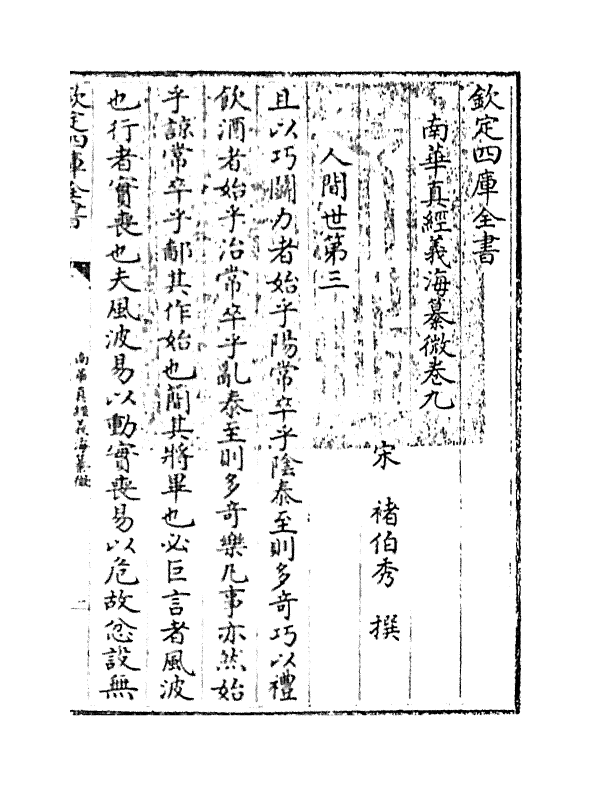 欽定四庫全書
南華真經義海纂微卷九
宋 褚伯秀 撰
人間世第三
且以巧鬭力者始乎陽常卒乎陰泰至則多奇巧以禮
飲酒者始乎治常卒乎亂泰至則多奇樂凡事亦然始
乎諒常卒乎鄙其作始也簡其將畢也必巨言者風波
也行者實喪也夫風波易以動實喪易以危故忿設無
欽定四庫全書
南華真經義海纂微